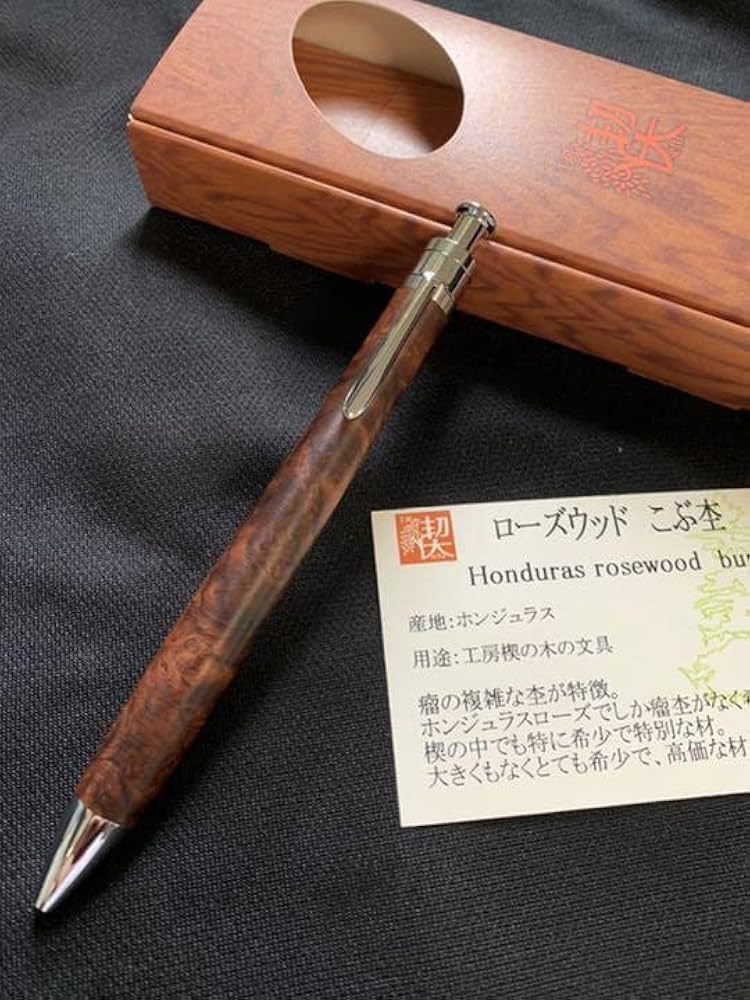 ローズウッド こぶ杢
Honduras rosewood
産地:ホンジュラス
用途:工房楔の木の文具
瘤の複雑な杢が特徴。
ホンジュラスローズでしか瘤杢がなく
楔の中でも特に希少で特別な材。
大きくもなくとても希少で、高価な材